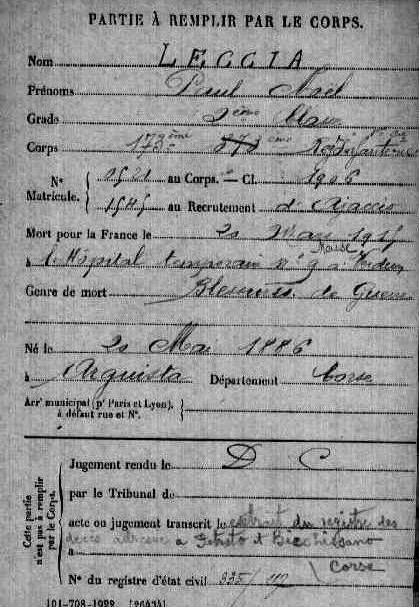 PARTIE À REMPLIR PAR LE CORPS.
Nom LECCIA
Prénoms Paul Noël
Grade 2ème
Corps 173ème Rgt Infanterie
N° 1521 au Corps. — Cl. 1906
Matricule. 1545 au Recrutement d'Ajaccio
Mort pour la France le 20
à l'Hôpital temporaire n° 9 Verdun
Genre de mort Blessures de Guerre
Né le 20 Mai 1886
à Arguista Département Corse
Arr' municipal (p' Paris et Lyon),
à défaut rue et N°.
Cette partie
n'est pas à remplir
par le Corps.
Jugement rendu le D C
par le Tribunal de
acte ou jugement transcrit le extrait du registre des
décès adressé à Petreto et Bicchisano
à Corse
N° du registre d'état civil
101-708-1922. [26434]